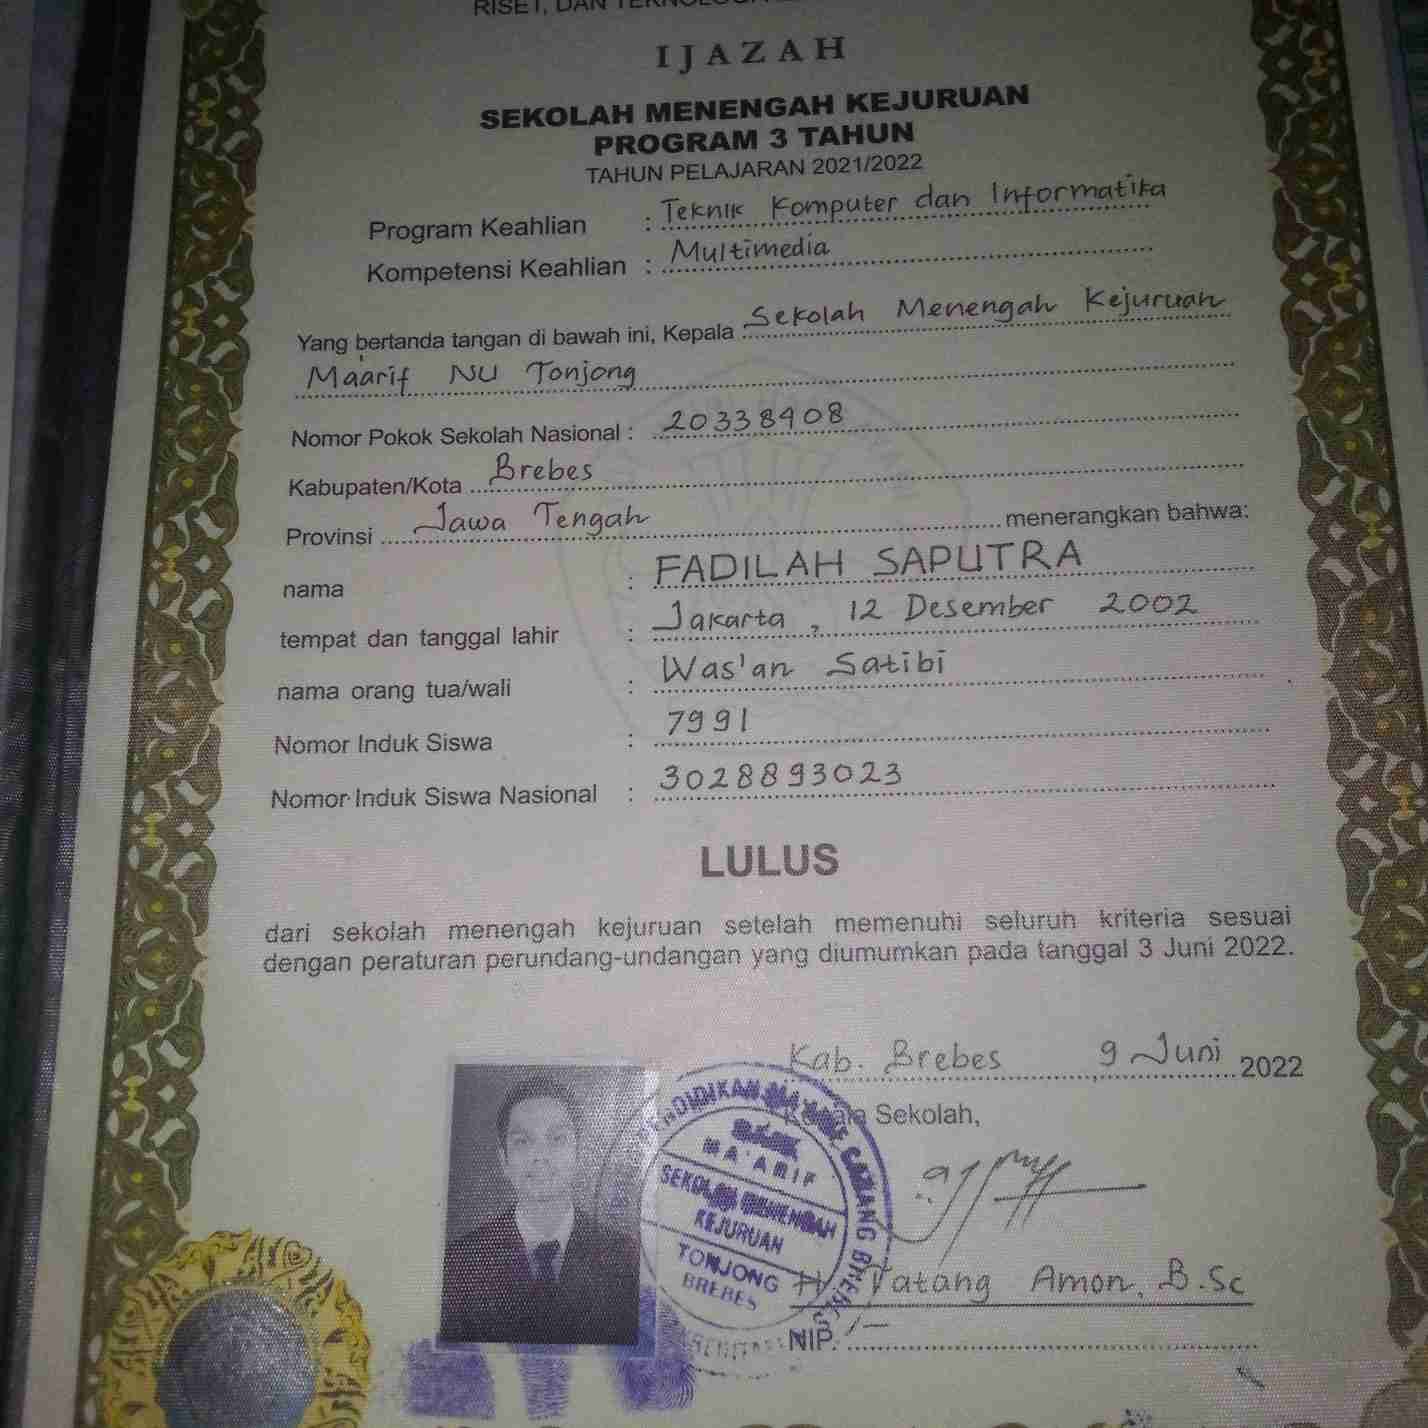 RISET, DAN
IJAZAH
SEKOLAH MENENGAH KEJURUAN
PROGRAM 3 TAHUN
TAHUN PELAJARAN 2021/2022
Program Keahlian : Teknik Komputer dan Informatika
Kompetensi Keahlian : Multimedia
Yang bertanda tangan di bawah ini, Kepala Sekolah Menengah Kejuruan
Ma'arif NU Tonjong
Nomor Pokok Sekolah Nasional : 20338908
Kabupaten/Kota Brebes
Provinsi Jawa Tengah menerangkan bahwa:
nama : FADILAH SAPUTRA
tempat dan tanggal lahir : Jakarta, 12 Desember 2002
nama orang tua/wali : Was'an Satibi
Nomor Induk Siswa : 7991
Nomor Induk Siswa Nasional : 3028893023
LULUS
dari sekolah menengah kejuruan setelah memenuhi seluruh kriteria sesuai
dengan peraturan perundang-undangan yang diumumkan pada tanggal 3 Juni 2022.
Kab. Brebes, 9 Juni 2022
Kepala Sekolah,
MA'ARIF
SEKOLAH MENENGAH
KEJURUAN
TONJONG
BREBES
H. Tatang Amon, B.Sc
NIP. -